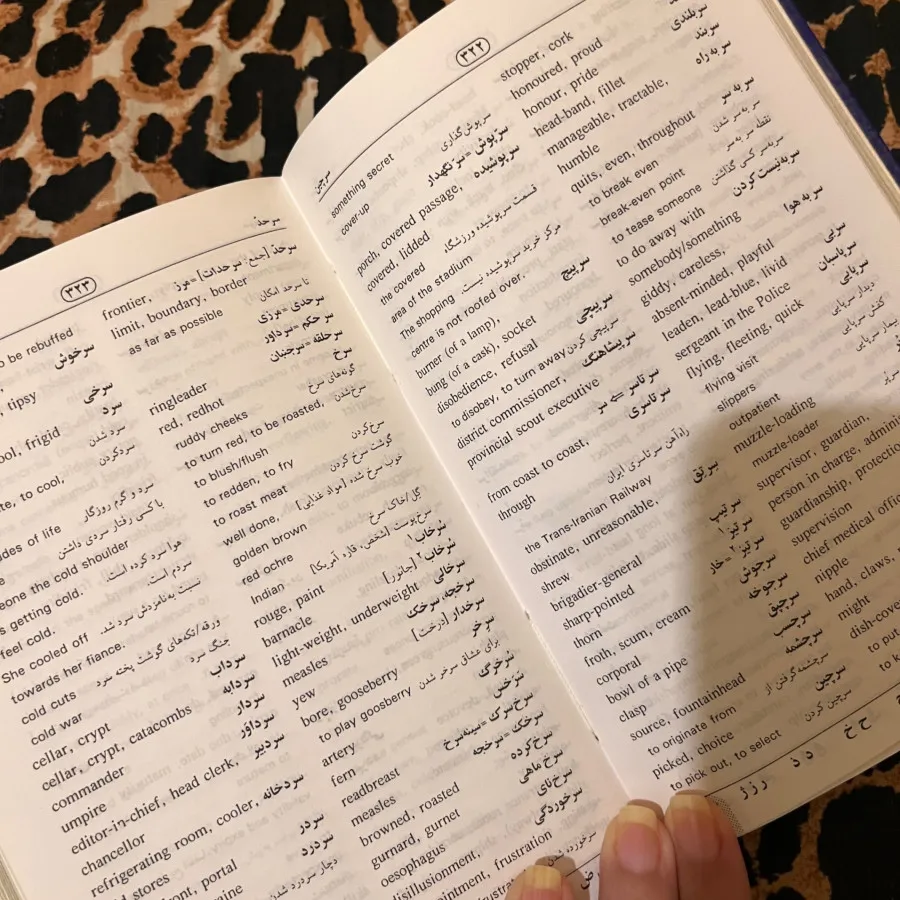 ۳۲۲
سرچین
stopper, cork
honoured, proud
سربلندی honour, pride
سربند head-band, fillet
سر به راه manageable, tractable,
humble
سر به سر quits, even, throughout
سربه‌سر شدن to break even
نقطه سربه‌سر break-even point
سربه‌سر کسی گذاشتن to tease someone
سر به نیست کردن to do away with
somebody/something
سر به هوا giddy, careless,
absent-minded, playful
سربی leaden, lead-blue, livid
سرپاسبان sergeant in the Police
سرپایی flying, fleeting, quick
دیدار سرپایی flying visit
کفش سرپایی slippers
بیمار سرپایی outpatient
muzzle-loading
muzzle-loader
supervisor, guardian,
person in charge,
guardianship,
supervision
chief medical
nipple
hand, claws,
might
to put
something secret
سرپوش گذاری cover-up
سرپوش = سر نگهدار
سرپوشیده porch, covered passage,
covered, lidded
قسمت سرپوشیده ورزشگاه the covered
area of the stadium
مرکز خرید سرپوشیده نیست. The shopping
centre is not roofed over.
سرپیچ burner (of a lamp),
bung (of a cask), socket
سرپیچی disobedience, refusal
سرپیچی کردن to disobey, to turn away
سرپیشاهنگ district commissioner,
provincial scout executive
سر تاسر ⇐ سر
سر تاسری from coast to coast,
through
راه‌آهن سر تاسری ایران the Trans-Iranian Railway
سرتق obstinate, unreasonable,
shrew
سر تیپ brigadier-general
سر تیز ۱ sharp-pointed
سر تیز ۲ = خار thorn
سرجوش froth, scum, cream
سرجوخه corporal
سرچپق bowl of a pipe
سرچسب clasp
سرچشمه source, fountainhead
سرچشمه گرفتن از to originate from
سرچین picked, choice
سرچین کردن to pick out, to select
ح خ د ذ ر ز ژ
۳۲۳
سرحد
سرحدّ [جمع: سرحدات] = مرز frontier,
limit, boundary, border
تا سرحد امکان as far as possible
سرحدی = مرزی
سر حکم = سرداور
سرحلقه = سرجنبان ringleader
سرخ red, redhot
گونه‌های سرخ ruddy cheeks
سرخ شدن to turn red, to be roasted,
to blush/flush
سرخ کردن to redden, to fry
گوشت سرخ کردن to roast meat
خوب سرخ شده [مواد غذایی] well done,
golden brown
گل/خاک سرخ red ochre
سرخ‌پوست [شخص، قاره آمریکا] Indian
سرخاب ۱ rouge, paint
سرخاب ۲ [جانور] barnacle
سرخالی light-weight, underweight
سرخجه، سرخک measles
سرخدار [درخت] yew
سر خر bore, gooseberry
برای عشاق سرخر شدن to play gooseberry
سرخرگ artery
سرخس fern
سرخ‌سرک = سینه‌سرخ readbreast
سرخک = سرخجه measles
سرخ‌کرده browned, roasted
سرخ ماهی gurnard, gurnet
سرخ‌نای oesophagus
سرخوردگی disillusionment,
frustration
سرخورده شدن
to be rebuffed
سرخوش
tipsy
سرخی
سرد cool, frigid
سرد شدن
سرد کردن to cool,
سرد و گرم روزگار
of life
با کسی رفتار سردی داشتن
the cold shoulder
هوا سرد کرده است. getting cold.
سردم است. feel cold.
نسبت به نامزدش سرد شد. She cooled off
towards her fiance.
ورقه/تکه‌های گوشت پخته سرد cold cuts
جنگ سرد cold war
سرداب cellar, crypt
سردابه cellar, crypt, catacombs
سردار commander
سرداور umpire
سردبیر editor-in-chief, head clerk,
chancellor
سردخانه refrigerating room, cooler,
stores
سردر front, portal
سردرد
دچار سردرد شدن